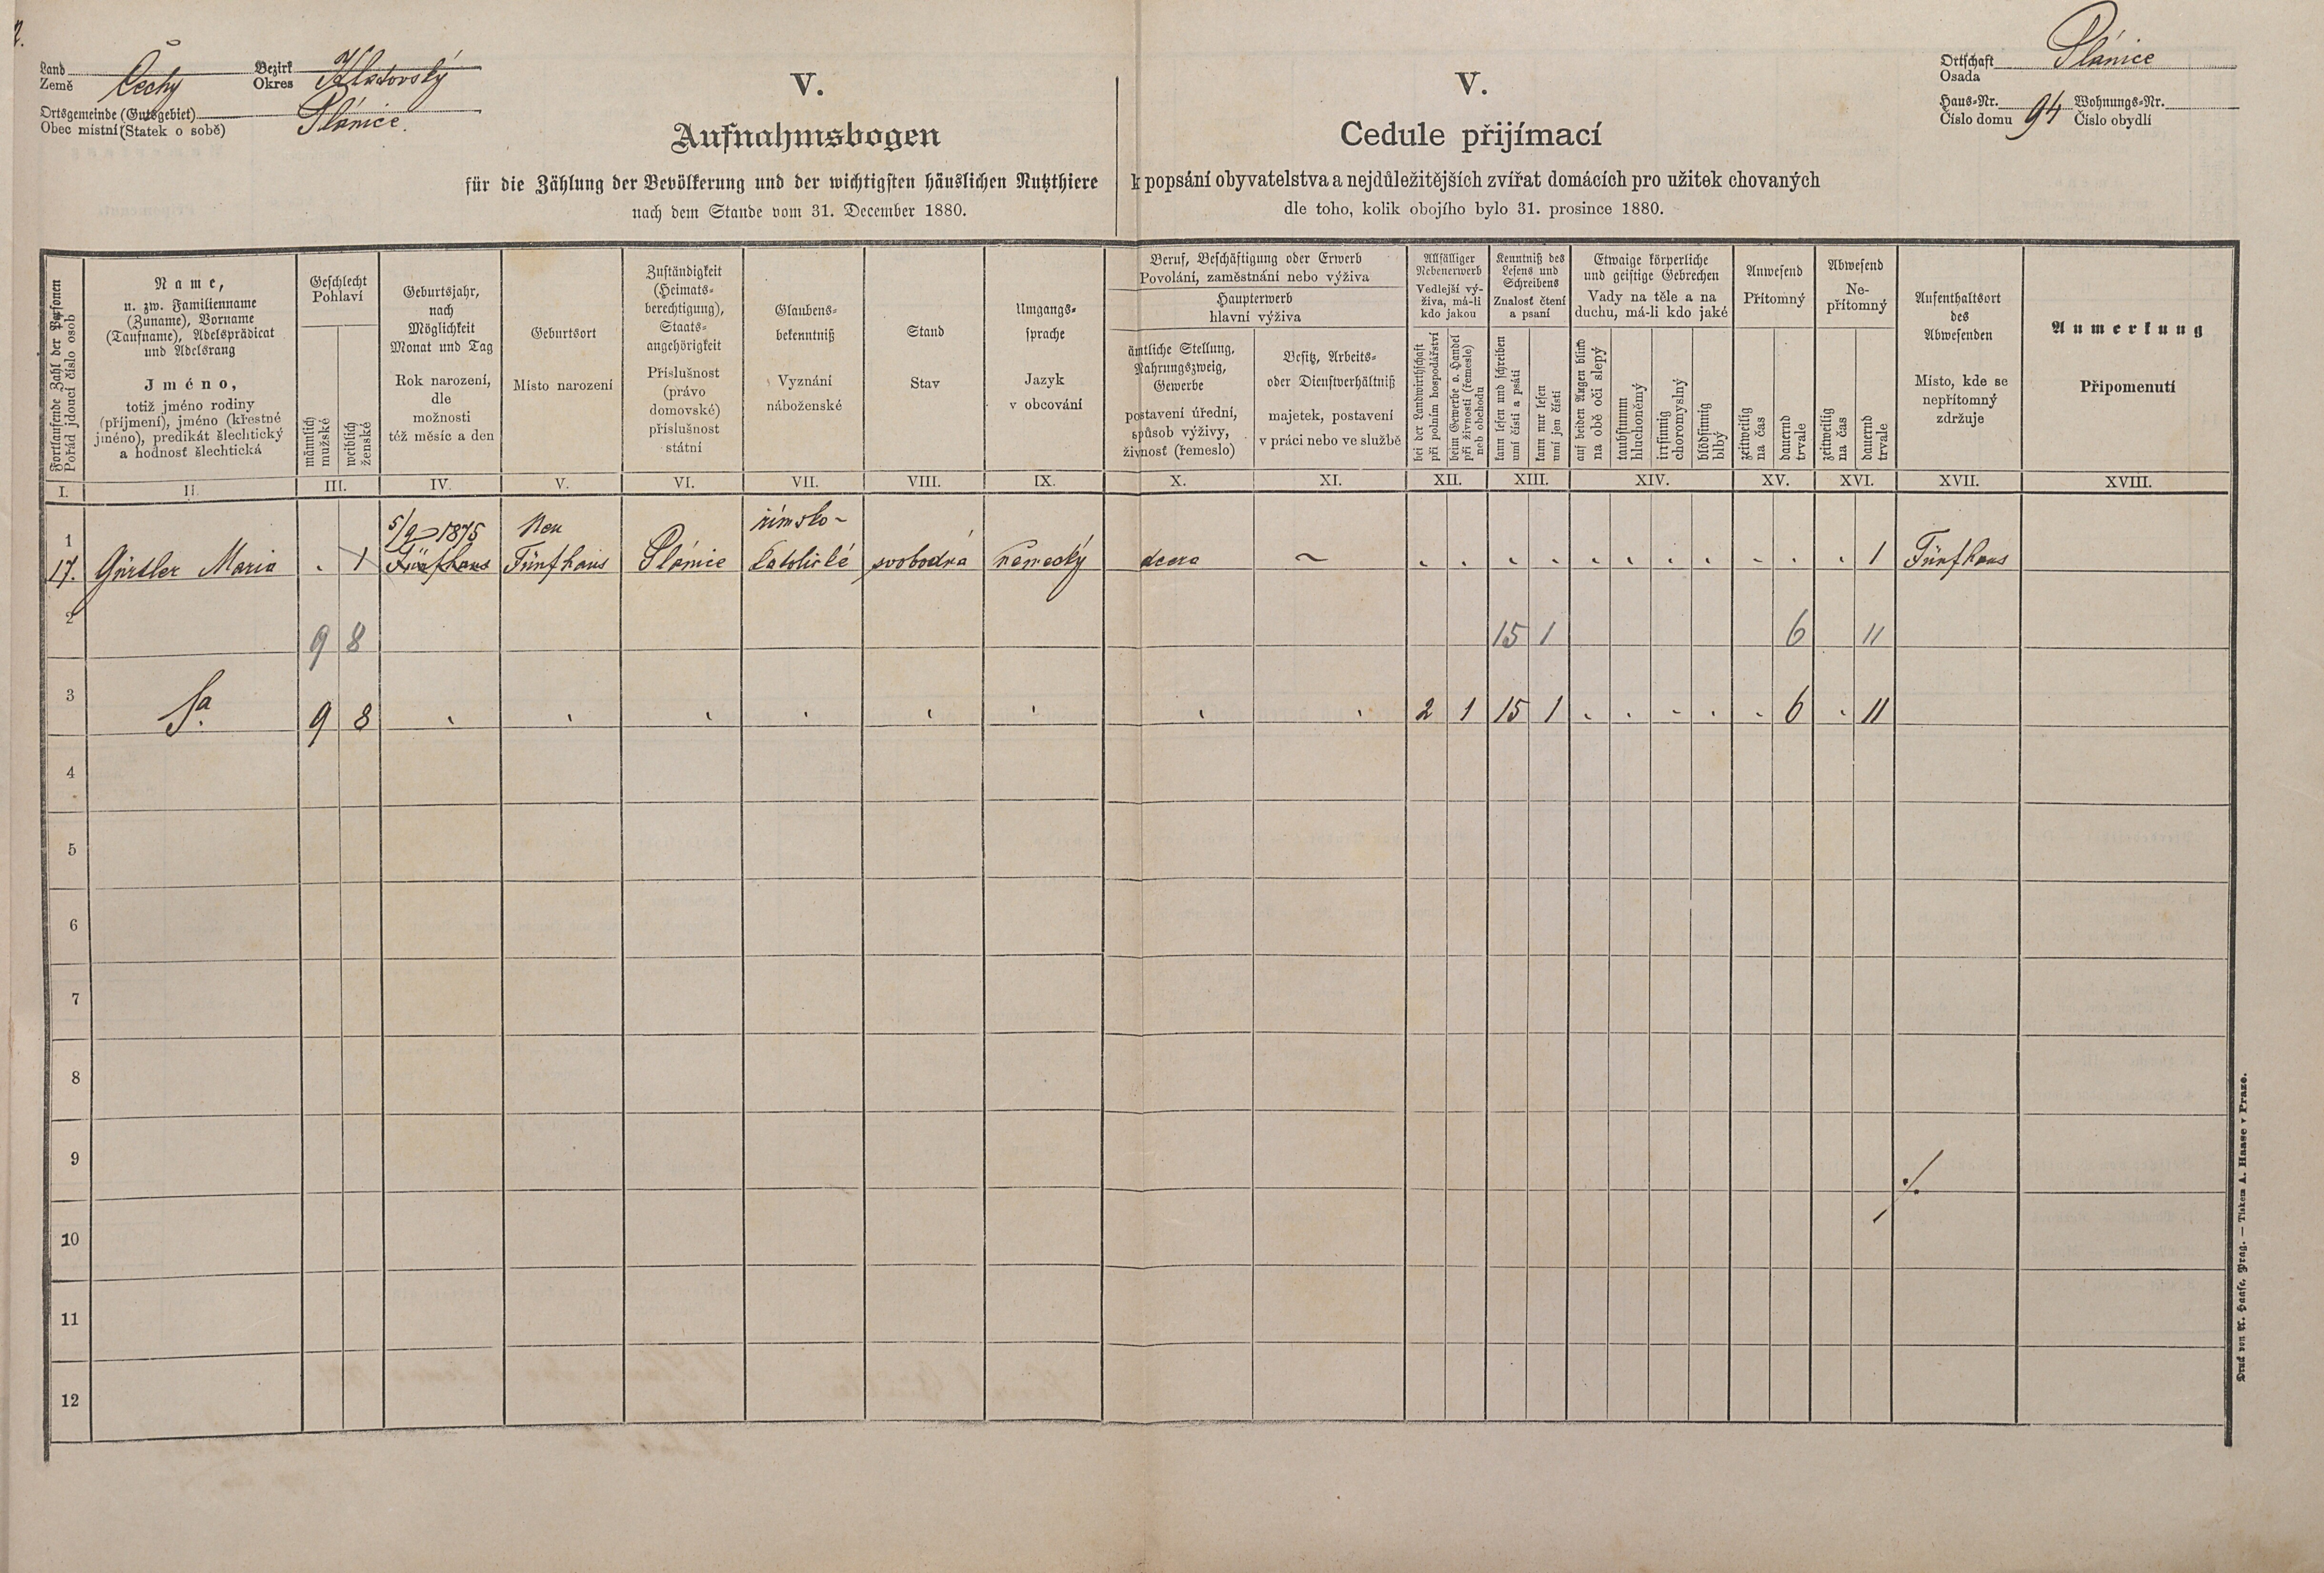 2.
Land Čechy Bezirk Klatovský
Země Okres
Ortsgemeinde (Gutsgebiet) Plánice.
Obec místní (Statek o sobě)
V.
Aufnahmsbogen
für die Zählung der Bevölkerung und der wichtigsten häuslichen Nutzthiere
nach dem Stande vom 31. December 1880.
V.
Cedule přijímací
k popsání obyvatelstva a nejdůležitějších zvířat domácích pro užitek chovaných
dle toho, kolik obojího bylo 31. prosince 1880.
Ortschaft Plánice
Osada
Haus-Nr. 94 Wohnungs-Nr.
Číslo domu Číslo obydlí
Fortlaufende Zahl der Personen
Pořád jdoucí číslo osob
Name,
u. zw. Familienname
(Zuname), Vorname
(Taufname), Adelsprädicat
und Adelsrang
Jméno,
totiž jméno rodiny
(příjmení), jméno (křestné
jméno), predikát šlechtický
a hodnosť šlechtická
Geschlecht
Pohlaví
männlich
mužské
weiblich
ženské
Geburtsjahr,
nach
Möglichkeit
Monat und Tag
Rok narození,
dle
možnosti
též měsíc a den
Geburtsort
Místo narození
Zuständigkeit
(Heimats-
berechtigung),
Staats-
angehörigkeit
Příslušnost
(právo
domovské)
příslušnost
státní
Glaubens-
bekenntniß
Vyznání
náboženské
Stand
Stav
Umgangs-
sprache
Jazyk
v obcování
Beruf, Beschäftigung oder Erwerb
Povolání, zaměstnání nebo výživa
Haupterwerb
hlavní výživa
ämtliche Stellung,
Nahrungszweig,
Gewerbe
postavení úřední,
způsob výživy,
živnosť (řemeslo)
Besitz, Arbeits-
oder Dienstverhältniß
majetek, postavení
v práci nebo ve službě
Allfälliger
Nebenerwerb
Vedlejší vý-
živa, má-li
kdo jakou
bei der Landwirthschaft
při polním hospodářství
beim Gewerbe o. Handel
při živnosti (řemesle)
neb obchodu
Kenntniß des
Lesens und
Schreibens
Znalosť čtení
a psaní
kann lesen und schreiben
umí čísti a psáti
kann nur lesen
umí jen čísti
Etwaige körperliche
und geistige Gebrechen
Vady na těle a na
duchu, má-li kdo jaké
auf beiden Augen blind
na obě oči slepý
taubstumm
hluchoněmý
irrsinnig
choromyslný
blödsinnig
blbý
Anwesend
Přítomný
zeitweilig
na čas
dauernd
trvale
Abwesend
Ne-
přítomný
zeitweilig
na čas
dauernd
trvale
Aufenthaltsort
des
Abwesenden
Místo, kde se
nepřítomný
zdržuje
Anmerkung
Připomenutí
I. II. III. IV. V. VI. VII. VIII. IX. X. XI. XII. XIII. XIV. XV. XVI. XVII. XVIII.
1 5/9 1875 Neu římsko-
17. Gürtler Maria . 1 Fünfhaus Fünfhaus Plánice katolické svobodná německý dcera ~ . . . . . . . . . . . 1 Fünfhaus
2 9 8 15 1 6 11
3 Sa. 9 8 2 1 15 1 . . - . . 6 . 11
4
5
6
7
8
9
10
11
12
./.
Druck von A. Haase, Prag. — Tiskem A. Haase v Praze.